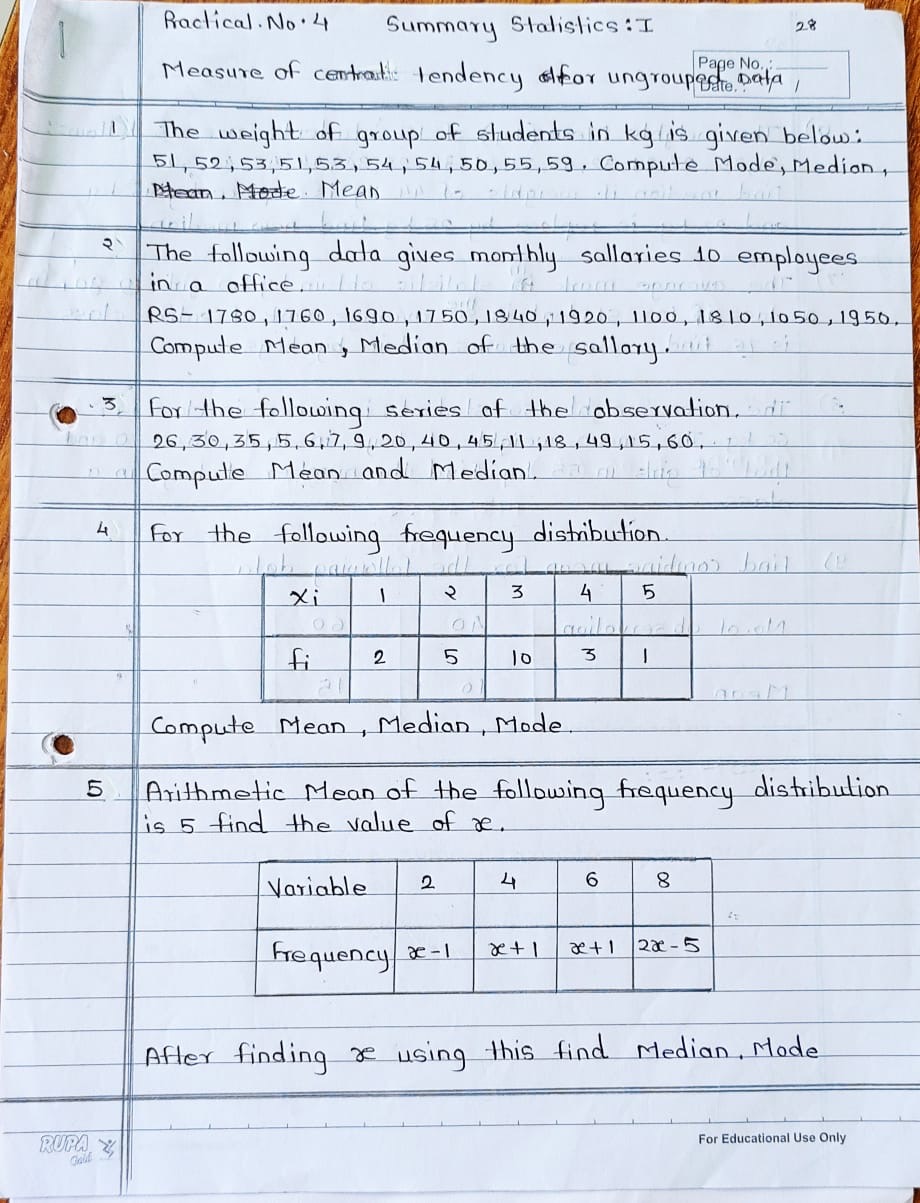 Practical. No. 4 Summary Statistics : I 28
Page No. :
Date. :
Measure of central tendency for ungrouped Data
1) The weight of group of students in kg is given below:
51, 52, 53, 51, 53, 54, 54, 50, 55, 59. Compute Mode, Median,
Mean. Mode. Mean
2 The following data gives monthly sallaries 10 employees
in a office.
RS- 1780, 1760, 1690, 1750, 1840, 1920, 1100, 1810, 1050, 1950.
Compute Mean, Median of the sallary.
3. For the following series of the observation.
26, 30, 35, 5, 6, 7, 9, 20, 40, 45, 11, 18, 49, 15, 60.
Compute Mean and Median.
4 For the following frequency distribution.
xi 1 2 3 4 5
fi 2 5 10 3 1
Compute Mean, Median, Mode.
5 Arithmetic Mean of the following frequency distribution
is 5 find the value of x.
Variable 2 4 6 8
Frequency x-1 x+1 x+1 2x-5
After finding x using this find Median. Mode
RUPA
Gold
For Educational Use Only